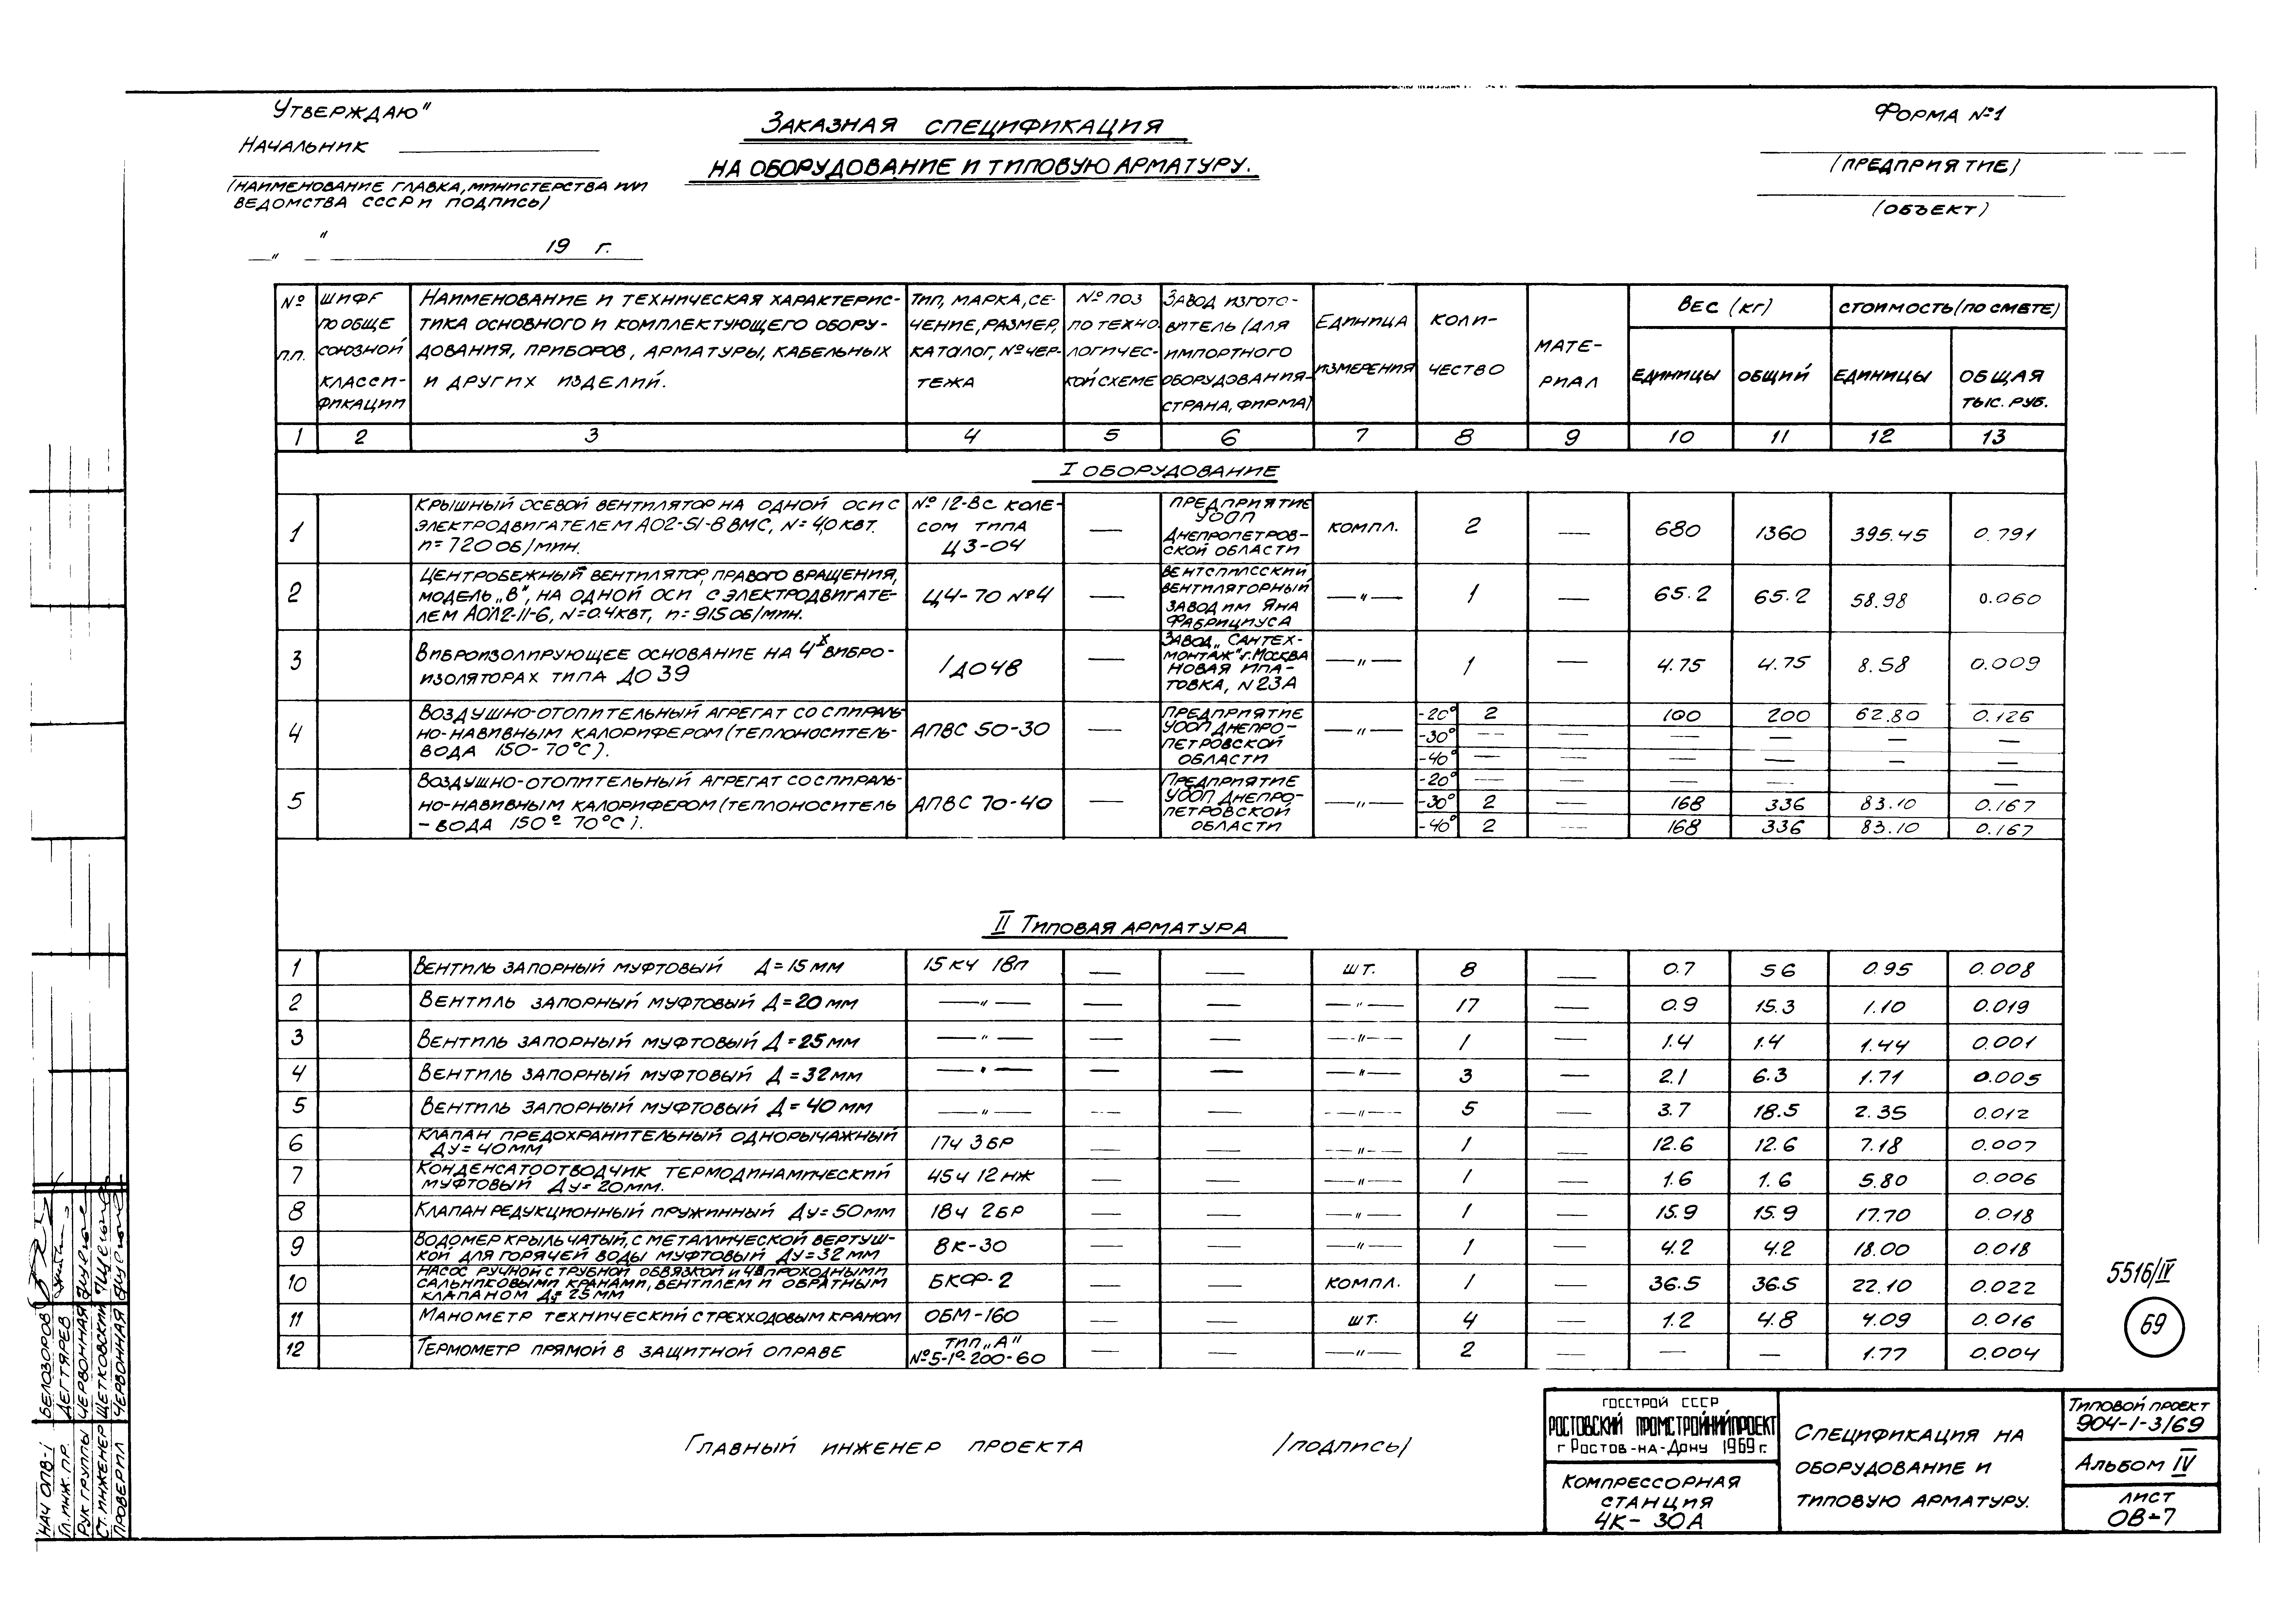 Утверждаю"
Начальник
(наименование главка, министерства или
ведомства СССР и подпись)
" " 19 г.
Заказная спецификация
на оборудование и типовую арматуру.
Форма №1
(предприятие)
(объект)
№ п.п.
Шифр по обще союзной классификации
Наименование и техническая характеристика основного и комплектующего оборудования, приборов, арматуры, кабельных и других изделий.
Тип, марка, сечение, размер, каталог, № чертежа
№ поз по технологической схеме
Завод изготовитель (для импортного оборудования-страна, фирма)
Единица измерения
Количество
Материал
Вес (кг)
единицы
общий
Стоимость (по смете)
единицы
общая тыс. руб.
1 2 3 4 5 6 7 8 9 10 11 12 13
I Оборудование
1 Крышный осевой вентилятор на одной оси с — — 
электродвигателем АО2-51-8 ВМС, N=4,0 квт.
n=720 об/мин.
№12-В с колесом типа Ц3-04
— Предприятие УООП Днепропетровской области компл. 2 — 680 1360 395.45 0.791
2 Центробежный вентилятор, правого вращения,
модель „В", на одной оси с электродвигате-
лем АОЛ2-11-6, N=0.4квт, n=915об/мин.
Ц4-70 №4 — Вентспилсский вентиляторный завод им Яна Фабрициуса —"— 1 — 65.2 65.2 58.98 0.060
3 Виброизолирующее основание на 4х вибро-
изоляторах типа ДО 39
1ДО48 — Завод „Сантехмонтаж" г. Москва Новая Ипатовка, N23А —"— 1 — 4.75 4.75 8.58 0.009
4 Воздушно-отопительный агрегат со спираль-
но-навивным калорифером (теплоноситель-
вода 150-70°С).
АПВС 50-30 — Предприятие УООП Днепропетровской области —"—
-20° 2 100 200 62.80 0.126
-30° — — — — — —
-40° — — — — — —
5 Воздушно-отопительный агрегат со спираль-
но-навивным калорифером (теплоноситель
-вода 150°-70°С).
АПВС 70-40 — Предприятие УООП Днепропетровской области —"—
-20° — — — — —
-30° 2 — 168 336 83.10 0.167
-40° 2 — 168 336 83.10 0.167
II Типовая арматура
1 Вентиль запорный муфтовый Д=15мм 15 кч 18п — — шт. 8 — 0.7 56 0.95 0.008
2 Вентиль запорный муфтовый Д=20мм —"— — — —"— 17 — 0.9 15.3 1.10 0.019
3 Вентиль запорный муфтовый Д=25мм —"— — — —"— 1 — 1.4 1.4 1.44 0.001
4 Вентиль запорный муфтовый Д=32мм —"— — — —"— 3 — 2.1 6.3 1.71 0.005
5 Вентиль запорный муфтовый Д=40мм —"— — — —"— 5 — 3.7 18.5 2.35 0.012
6 Клапан предохранительный однорычажный
Ду=40мм
17ч 3бр — — —"— 1 — 12.6 12.6 7.18 0.007
7 Конденсатоотводчик термодинамический
муфтовый Ду=20мм.
45ч 12 нж — — —"— 1 — 1.6 1.6 5.80 0.006
8 Клапан редукционный пружинный Ду=50мм 18ч 2бр — — —"— 1 — 15.9 15.9 17.70 0.018
9 Водомер крыльчатый, с металлической вертуш-
кой для горячей воды муфтовый Ду=32мм
ВК-30 — — —"— 1 — 4.2 4.2 18.00 0.018
10 Насос ручной с трубной обвязкой и 4я проходными
сальниковыми кранами, вентилем и обратным
клапаном Ду 25мм
БКФ-2 — — компл. 1 — 36.5 36.5 22.10 0.022
11 Манометр технический с трехходовым краном ОБМ-160 — — шт. 4 — 1.2 4.8 4.09 0.016
12 Термометр прямой в защитной оправе тип „А" №5-1°-200-60 — — —"— 2 — — — 1.77 0.004
Главный инженер проекта /подпись/
5516/IV
69
Госстрой СССР
Ростовский Промстройниипроект
г Ростов-на-Дону 1969г.
Компрессорная
станция
4К-30А
Спецификация на
оборудование и
типовую арматуру.
Типовой проект
904-1-3/69
Альбом IV
лист
ОВ-7
Нач ОПВ-1 Белозоров
Гл. инж. пр. Дегтярев
Рук группы Червонная
Ст. инженер Щетковский
Проверил Червонная